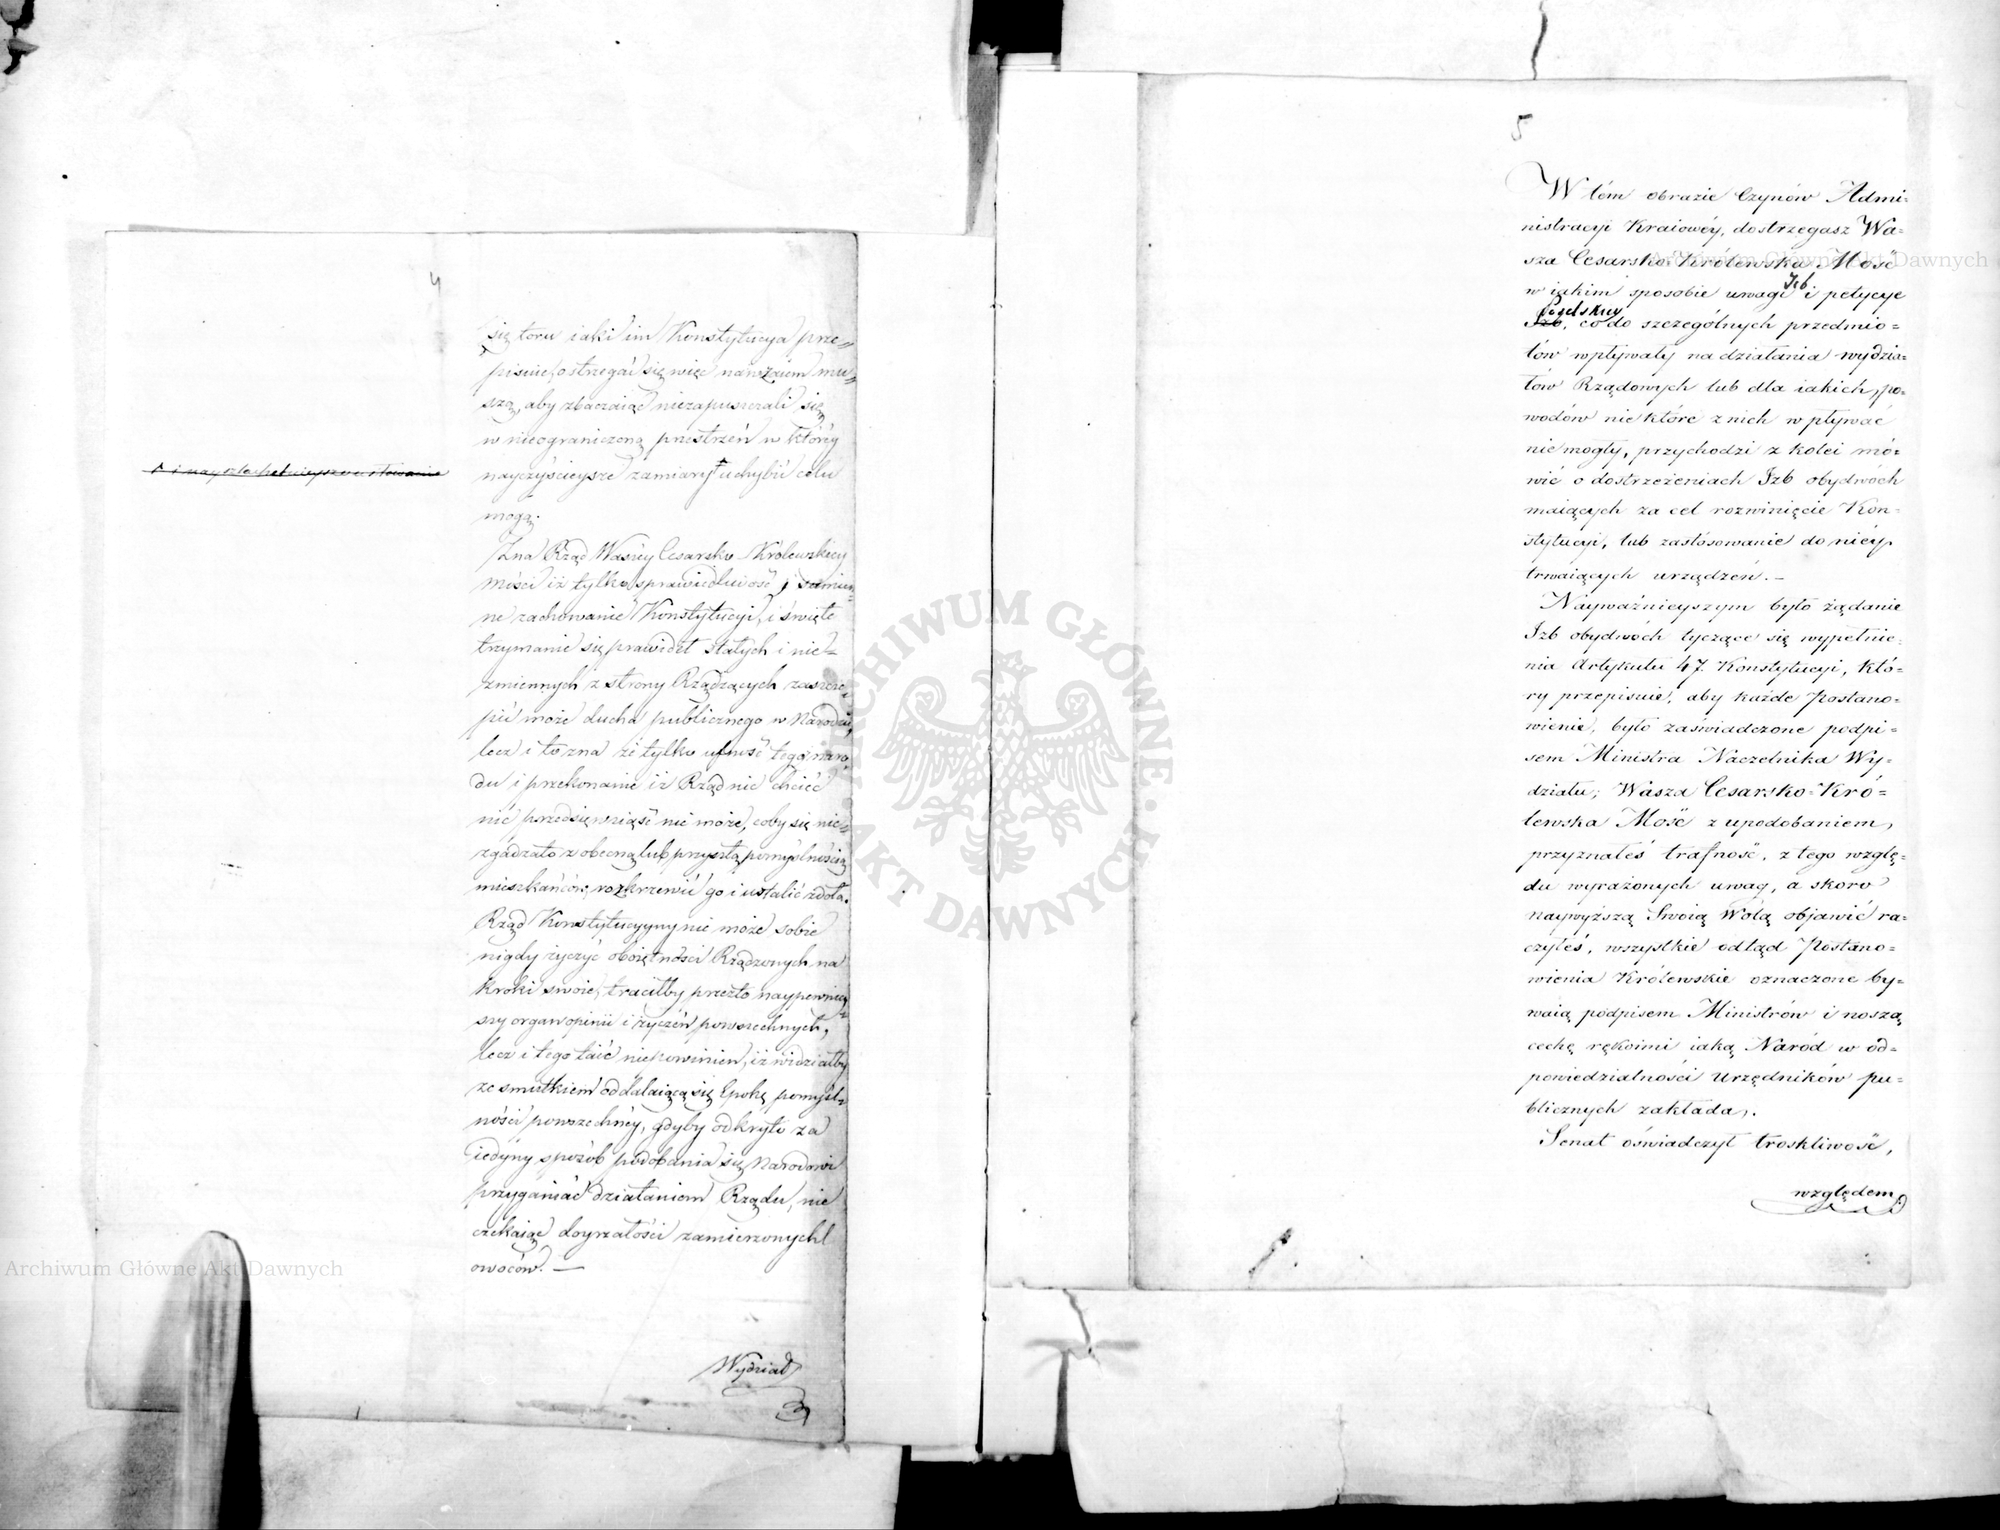 4
się toru iaki im Konstytucya prze=
pisuie, ostrzegać się więc nawzaiem mu=
szą, aby zbaczaiąc niezapuszczali się
w nieograniczoną przestrzeń w któréy
nayczyścieysze zamiary uchybić celu
mogą.
Zna Rząd Waszéy Cesarsko-Królewskiey
Mości iż tylko sprawiedliwość, i sumien=
ne zachowanie Konstytucyi, i święte
trzymanie się prawideł stałych i nie=
zmiennych z strony Rządzących zaszcze=
pić może ducha publicznego w Narodzie,
lecz i to zna że tylko ufność tego naro=
du i przekonanie iż Rząd nic chcieć
nic przedsięwziąść nie może, coby się nie=
zgadzało z obecną lub przyszłą pomyślnością
mieszkańców, rozkrzewić go i ustalić zdoła.
Rząd Konstytucyyny nie może sobie
nigdy życzyć oboiętności Rządzonych na
kroki swoie, traciłby przezto naypewniey=
szy organ opinii i życzeń powszechnych,
lecz i tego taić niepowinien, iż widziałby
ze smutkiem oddalaiącą się Epokę pomyśl=
ności powszechnéy, gdyby odkryto za
iedyny sposób podobania się Narodowi
przyganiać działaniom Rządu, nie
czekaiąc doyrzałości zamierzonych
owoców. —
Wydział
5
W tém obrazie Czynów Admi=
nistracyi Kraiowéy, dostrzegasz Wa=
sza Cesarsko-Królewska Mość
w iakim sposobie uwagi Izb i petycye
Poselskiey
Izb, co do szczególnych przedmio=
tów wpływały na działania wydzia=
łów Rządowych lub dla iakich, po=
wodów nie które z nich wpływać
nie mogły, przychodzi z kolei mó=
wić o dostrzeżeniach Izb obydwóch
maiących za cel rozwinięcie Kon=
stytucyi, lub zastósowanie do niéy
trwaiących urządzeń. —
Nayważnieyszym było żądanie
Izb obydwóch tyczące się wypełnie=
nia Artykułu 47. Konstytucyi, któ=
ry przepisuie, aby każde Postano=
wienie, było zaświadczone podpi=
sem Ministra Naczelnika Wy=
działu; Wasza Cesarsko=Kró=
lewska Mość z upodobaniem,
przyznałeś trafność, z tego wzglę=
du wyrażonych uwag, a skoro
naywyższą Swoią Wolą objawić ra=
czyłeś, wszystkie odtąd Postano=
wienia Królewskie oznaczone by=
waią podpisem Ministrów i noszą
cechę rękoimi iaką Naród w od=
powiedzialności Urzędników pu=
blicznych zakłada.
Senat oświadczył troskliwość,
względem
Archiwum Główne Akt Dawnych
Archiwum Główne Akt Dawnych
ARCHIWUM GŁÓWNE AKT DAWNYCH